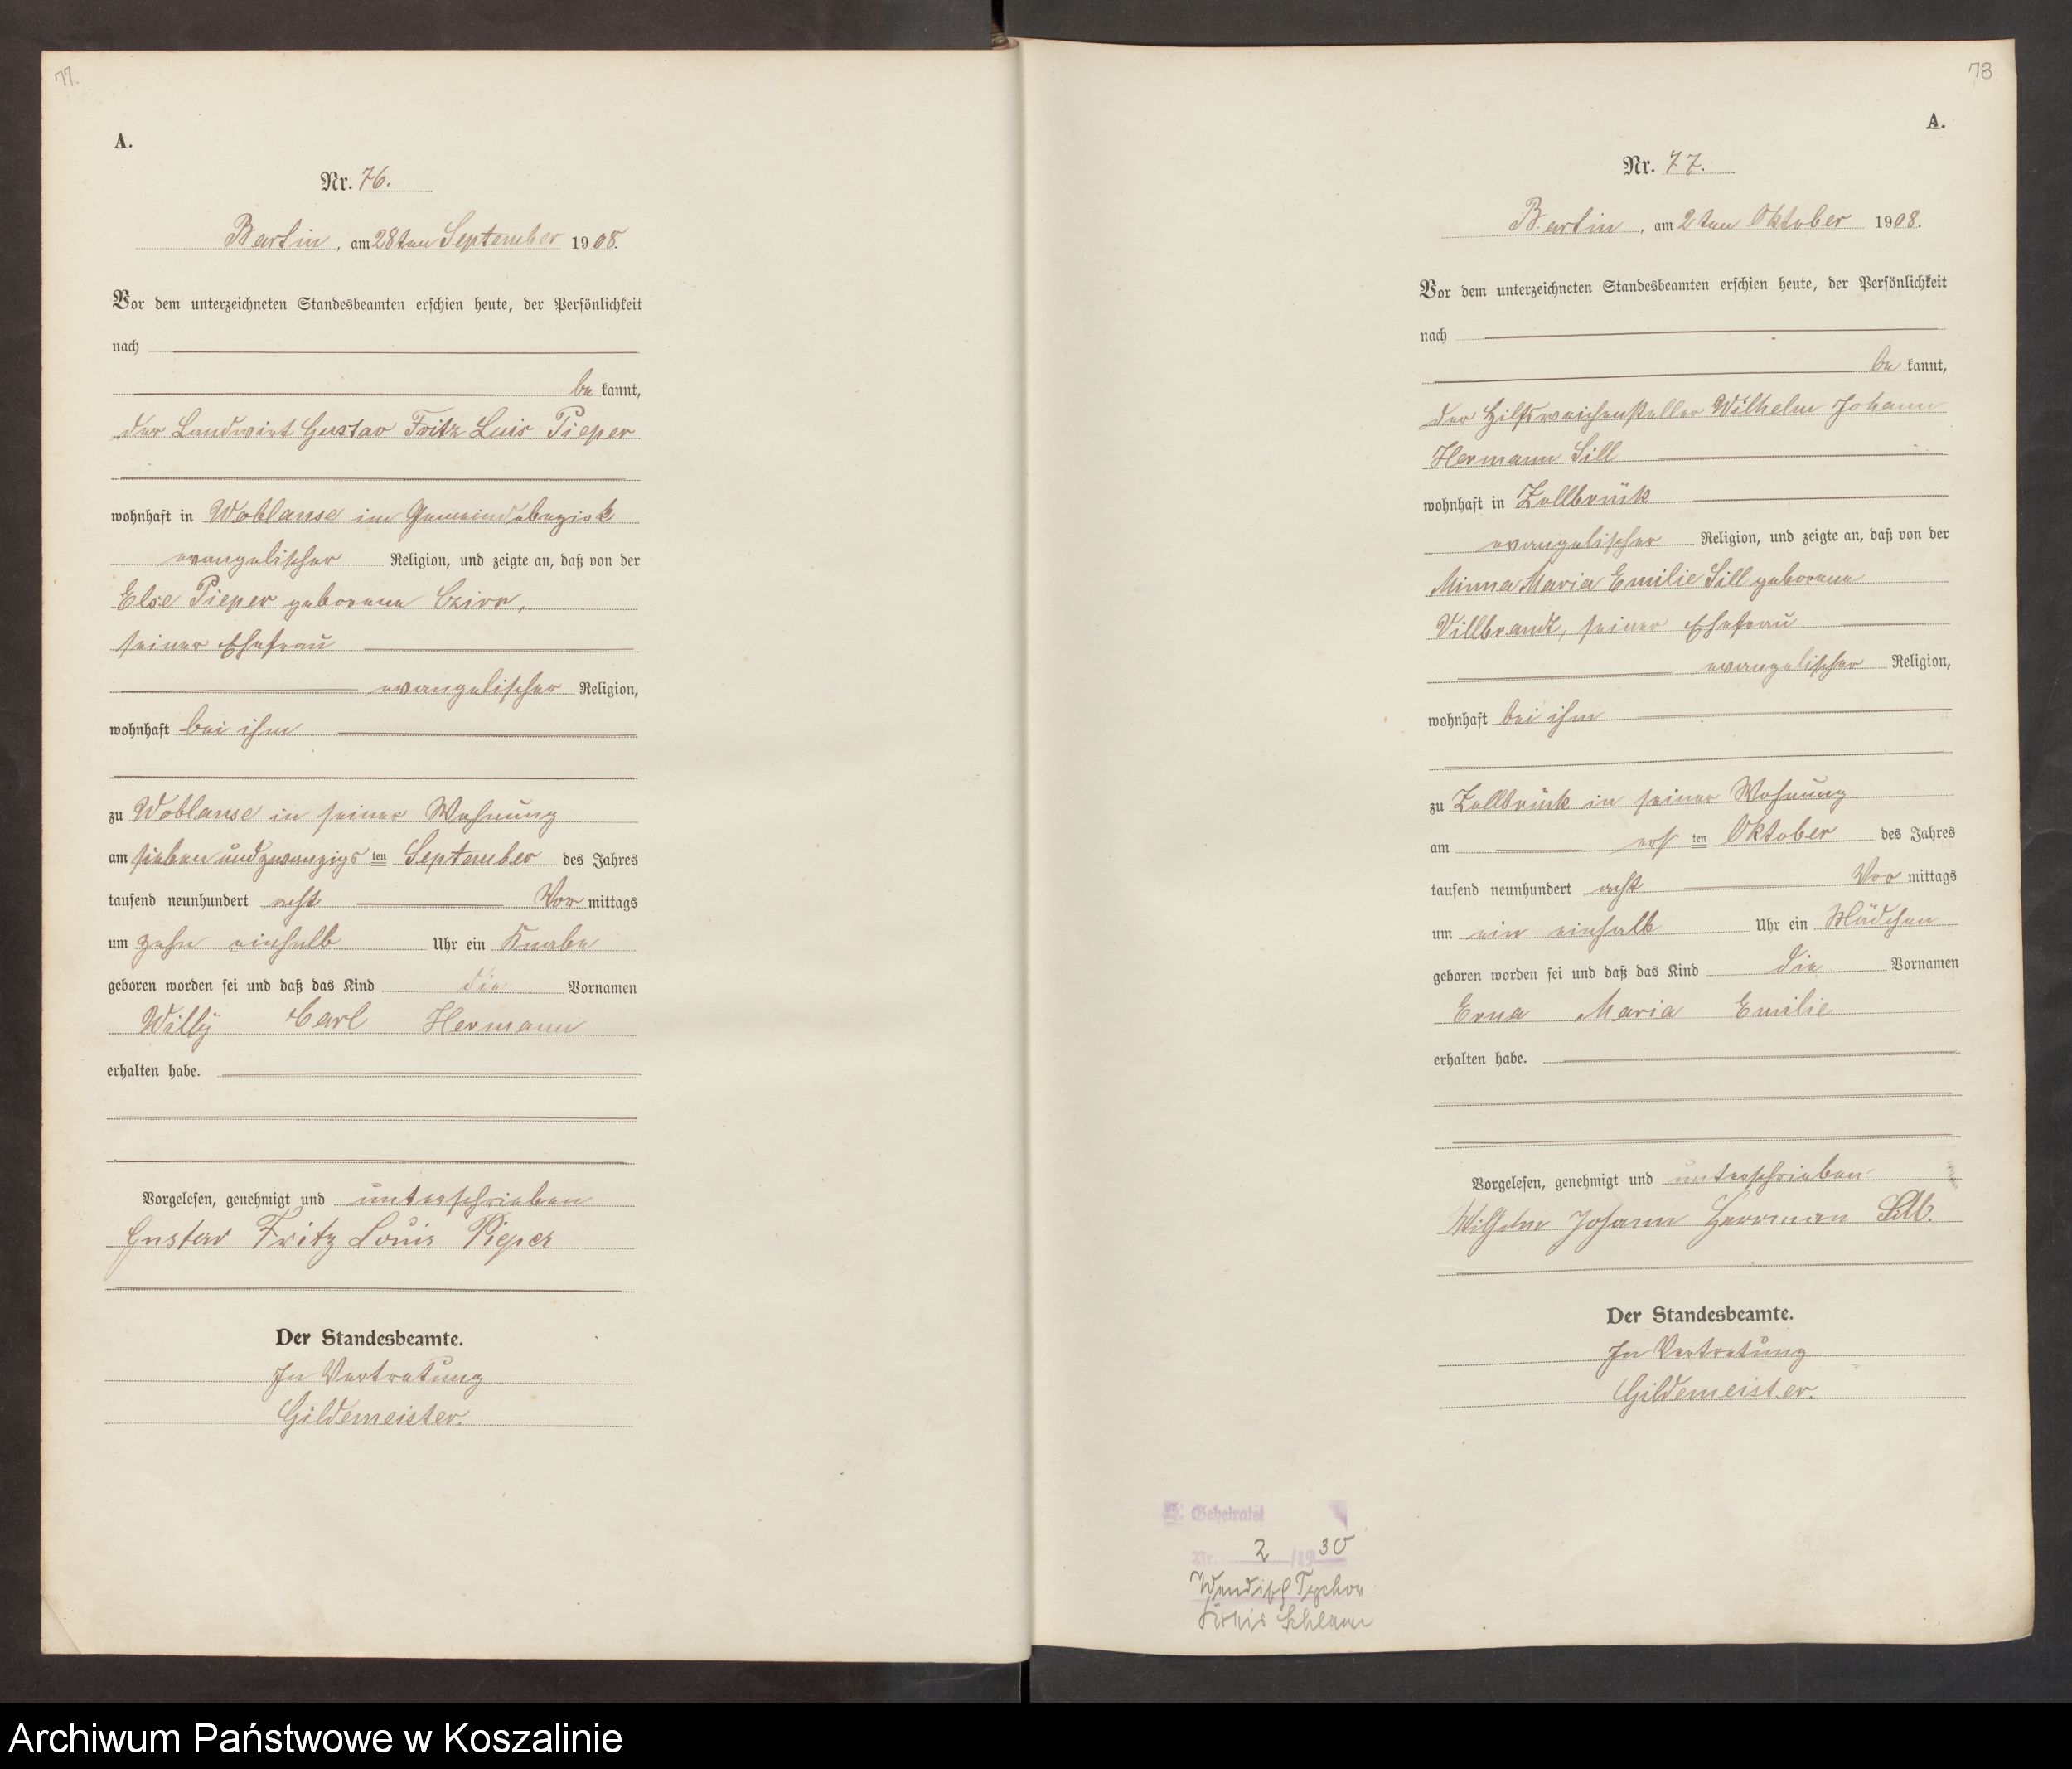 77.
A.
Nr. 76.
Bartin, am 28ten September 1908.
Vor dem unterzeichneten Standesbeamten erschien heute, der Persönlichkeit
nach
be kannt,
der Landwirt Gustav Fritz Luis Pieper
wohnhaft in Woblanse im Gemeindebezirk
evangelischer Religion, und zeigte an, daß von der
Else Pieper geborene Czirr,
seiner Ehefrau
evangelischer Religion,
wohnhaft bei ihm
zu Woblanse in seiner Wohnung
am sieben und zwanzigs ten September des Jahres
tausend neunhundert acht Vor mittags
um zehn einhalb Uhr ein Knabe
geboren worden sei und daß das Kind die Vornamen
Willÿ Carl Hermann
erhalten habe.
Vorgelesen, genehmigt und unterschrieben
Gustav Fritz Louis Pieper
Der Standesbeamte.
In Vertretung
Gildemeister.
78
A.
Nr. 77.
Bartin, am 2ten Oktober 1908.
Vor dem unterzeichneten Standesbeamten erschien heute, der Persönlichkeit
nach
be kannt,
der Hilfsweichensteller Wilhelm Johann
Hermann Sill
wohnhaft in Zollbrück
evangelischer Religion, und zeigte an, daß von der
Minna Maria Emilie Sill geborene
Villbrandt, seiner Ehefrau
evangelischer Religion,
wohnhaft bei ihm
zu Zollbrück in seiner Wohnung
am ers ten Oktober des Jahres
tausend neunhundert acht Vor mittags
um ein einhalb Uhr ein Mädchen
geboren worden sei und daß das Kind die Vornamen
Erna Maria Emilie
erhalten habe.
Vorgelesen, genehmigt und unterschrieben
Wilhelm Johann Herrman Sill.
Der Standesbeamte.
In Vertretung
Gildemeister.
Geheiratet
Nr. 2 /1930
Wendisch Tychow
Schlawe
Archiwum Państwowe w Koszalinie